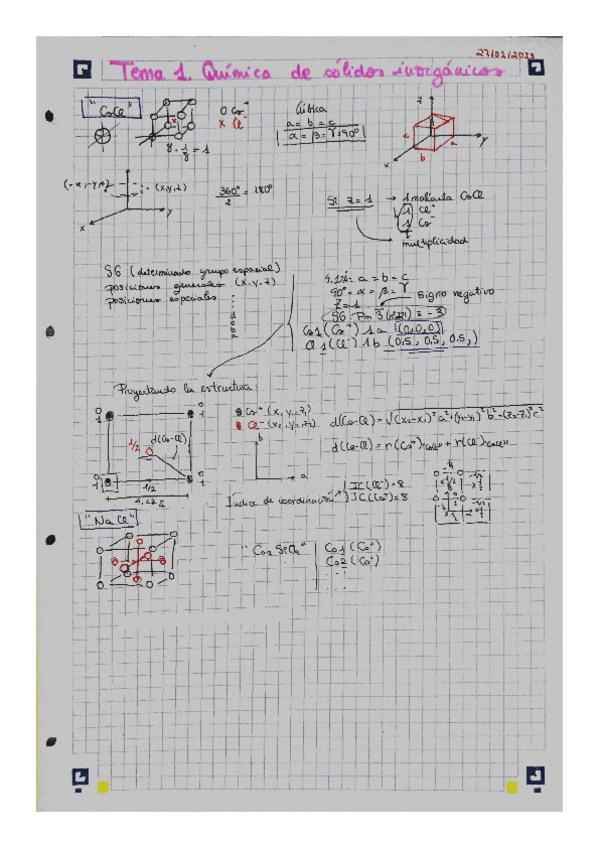 27/01/2023
Tema 1. Química de sólidos inorgánicos
"CsCl"
O Cs⁺
x Cl⁻
8 · 1/8 = 1
Cúbica
a = b = c
α = β = γ = 90º
z
y
x
a
b
c
(-x, -y, z)
(x, y, z)
x
y
360º/2 = 180º
Si Z = 1 → 1 molécula CsCl
1 Cl⁻
1 Cs⁺
multiplicidad
SG (determinado grupo espacial)
posiciones generales (x, y, z)
posiciones especiales
a = b = c
90º = α = β = γ
Z = 1
Signo negativo
Cs1 (Cs⁺) 1a (0,0,0)
Cl1 (Cl⁻) 1b (0,5, 0,5, 0,5)
Proyectando la estructura:
1/2
d(Cs-Cl)
1/2
Cs⁺ (x₁, y₁, z₁)
Cl⁻ (x₂, y₂, z₂)
b
a
d(Cs-Cl) = √(x₂-x₁)² a² + (y₂-y₁)² b² + (z₂-z₁)² c²
d(Cs-Cl) = r(Cs⁺) + r(Cl⁻)
Índice de coordinación
IC(Cl⁻) = 8
IC(Cs⁺) = 8
"NaCl"